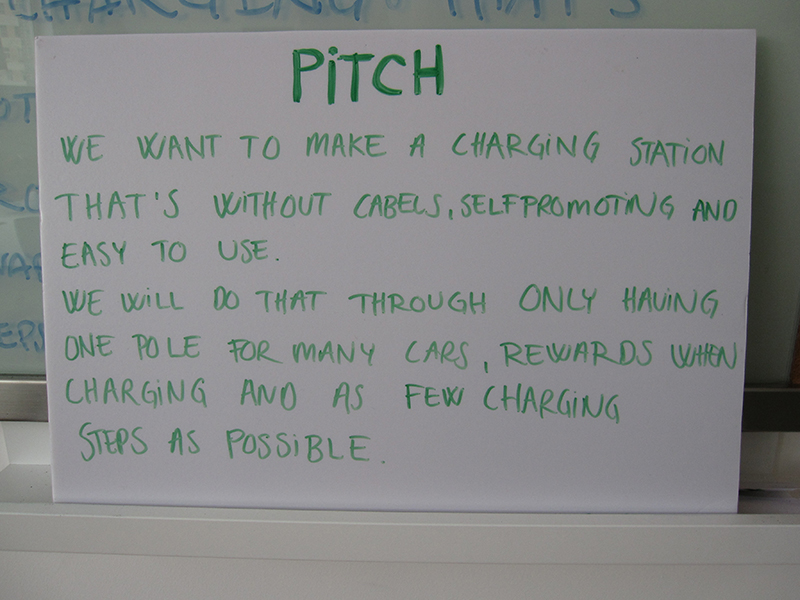 CHARGING THAT'S
PiTCH
WE WANT TO MAKE A CHARGiNG STATiON
THAT'S WiTHOUT CABELS, SELFPROMOTiNG AND
EASY TO USE.
WE WiLL DO THAT THROUGH ONLY HAViNG
ONE POLE FOR MANY CARS, REWARDS WHEN
CHARGiNG AND AS FEW CHARGiNG
STEPS AS POSSiBLE.